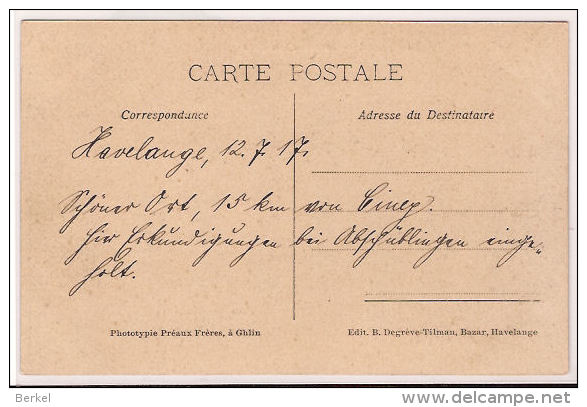 CARTE POSTALE
Correspondance
Adresse du Destinataire
Havelange, 12. 7. 17.
Schöner Ort, 15 km von Ciney.
hier Erkundigungen bei einge-
holt.
Phototypie Préaux Frères, à Ghlin
Edit. B. Degrève-Tilman, Bazar, Havelange
Berkel
delcampe.net